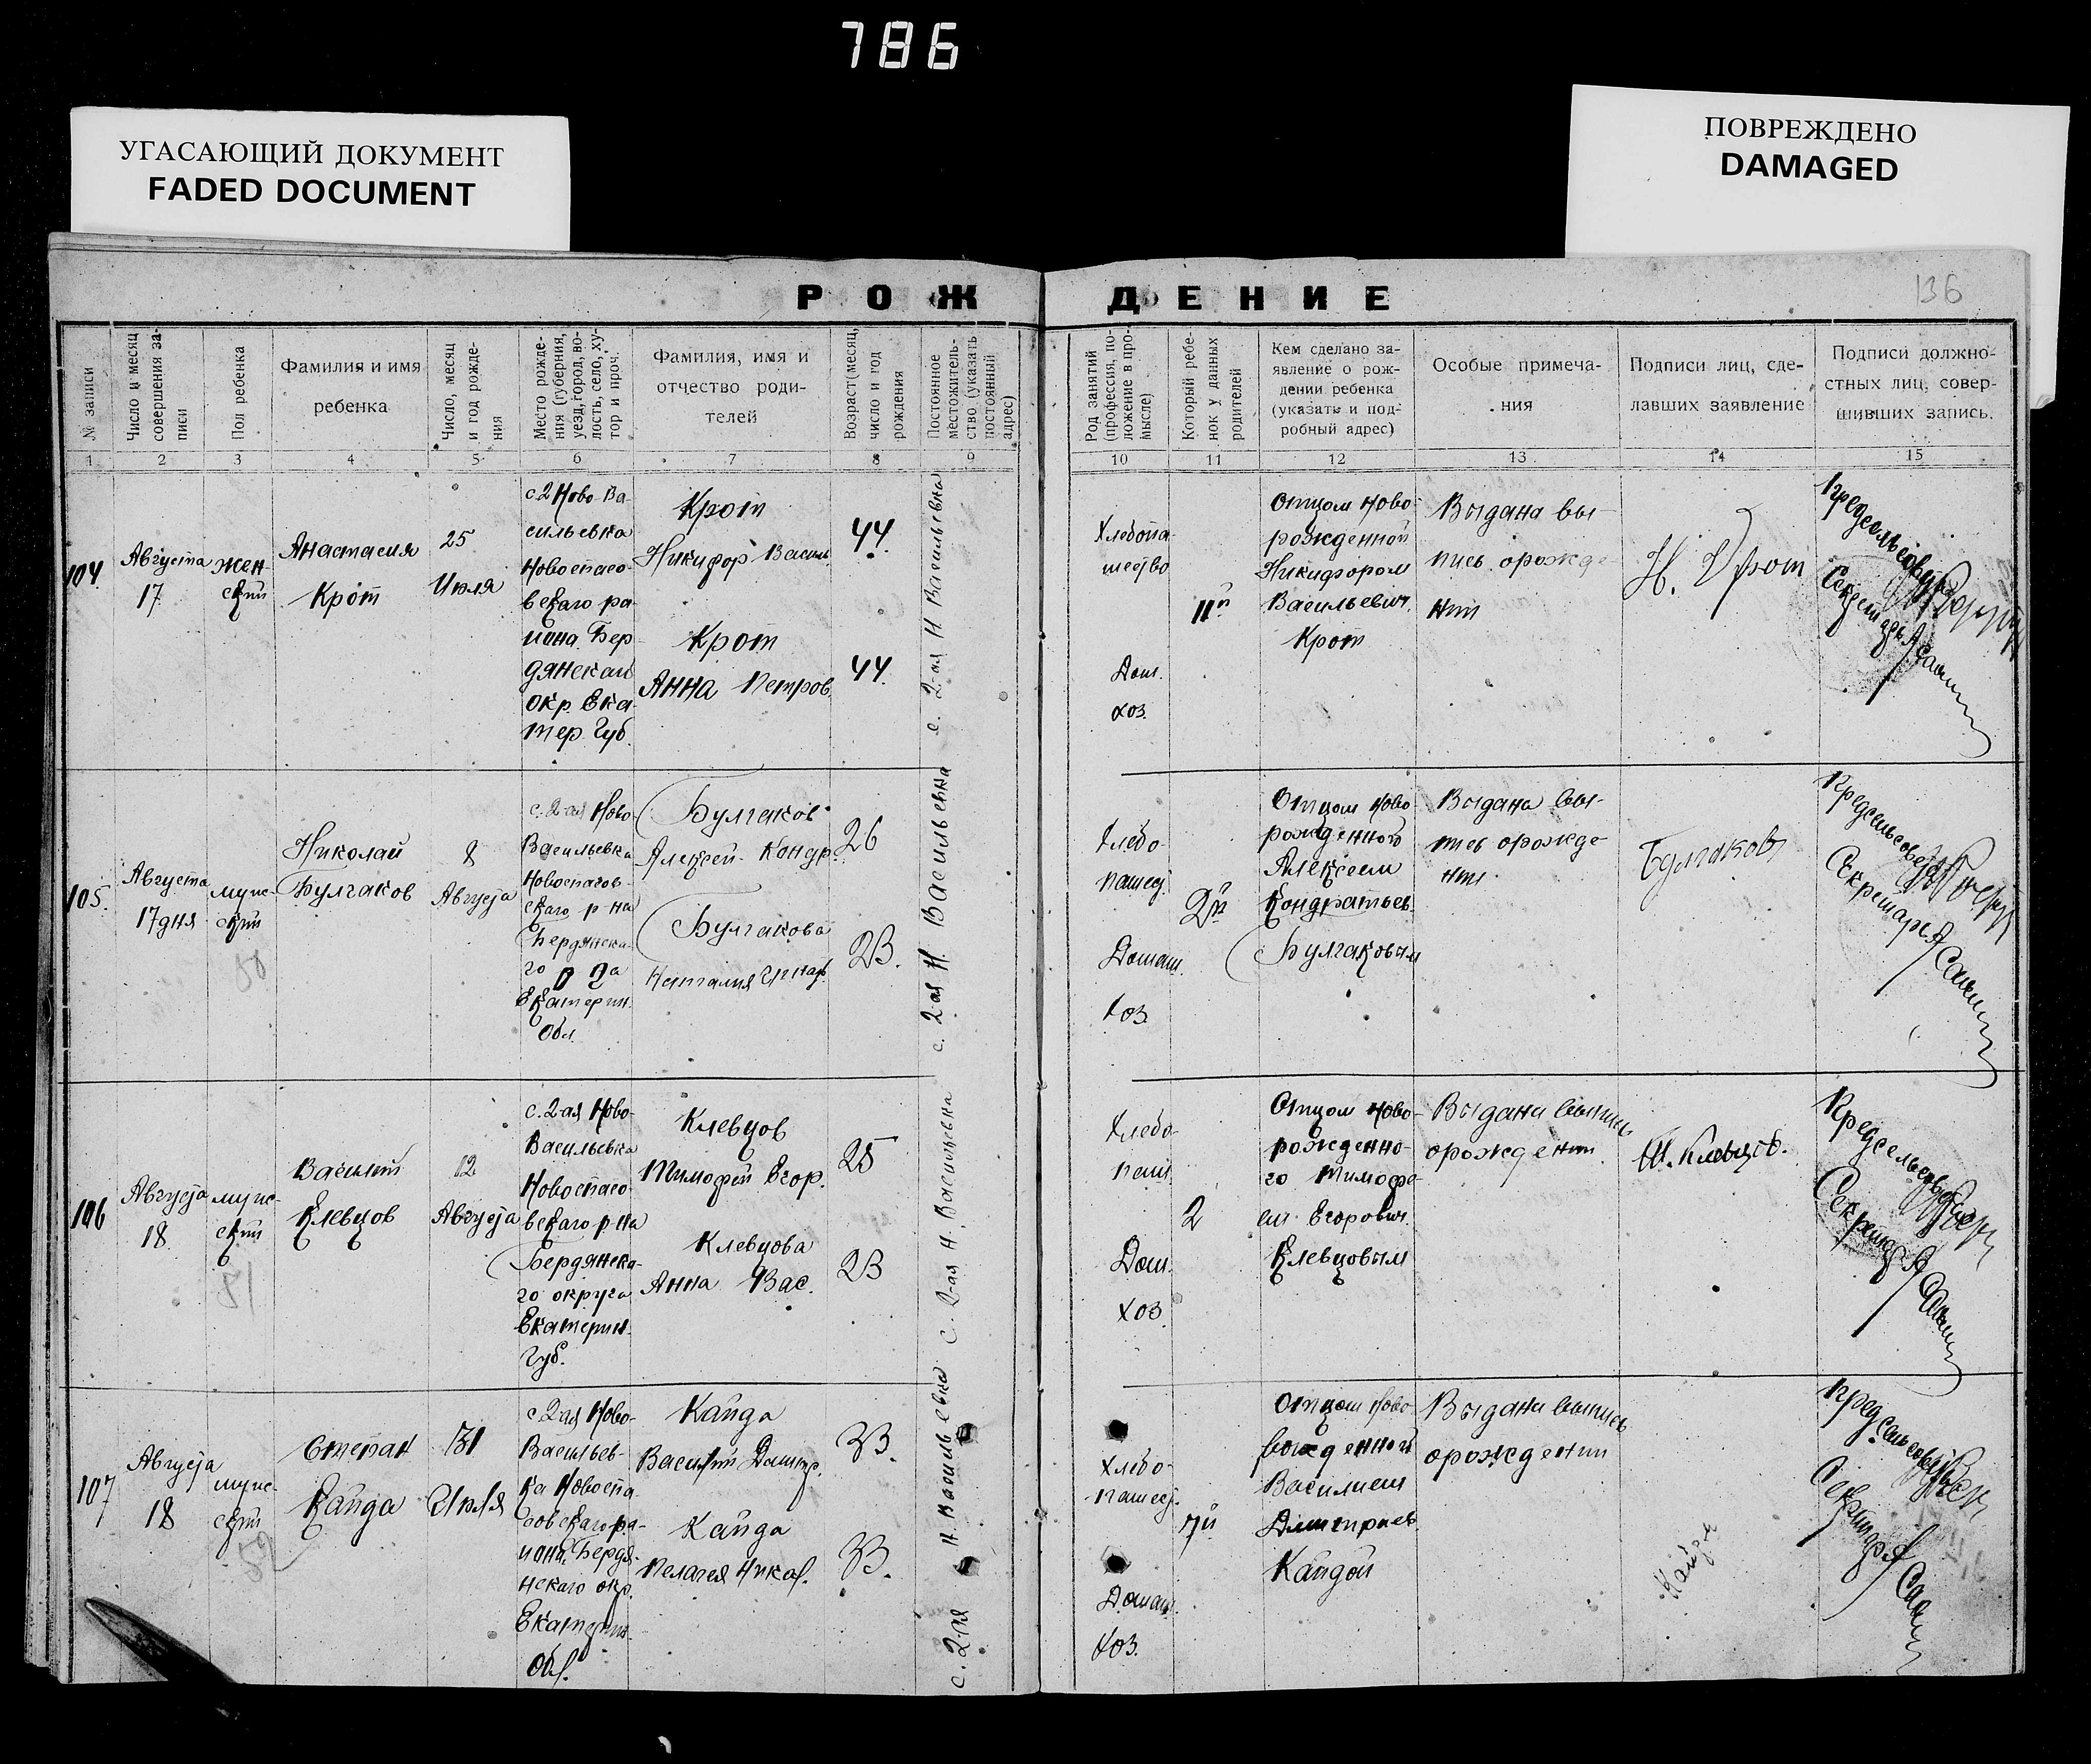 786
УГАСАЮЩИЙ ДОКУМЕНТ
FADED DOCUMENT
ПОВРЕЖДЕНО
DAMAGED
РОЖДЕНИЕ
136
№ записи
Число и месяц
совершения за-
писи
Пол ребенка
Фамилия и имя
ребенка
Число, месяц
и год рожде-
ния
Место рожде-
ния (губерния,
уезд, город, во-
лость, село, ху-
тор и проч.
Фамилия, имя и
отчество роди-
телей
Возраст (месяц,
число и год
рождения
Постоянное
местожитель-
ство (указать
постоянный
адрес)
Род занятий
(профессия, по-
ложение в про-
мысле)
Который ребе-
нок у данных
родителей
Кем сделано за-
явление о рож-
дении ребенка
(указать и под-
робный адрес)
Особые примеча-
ния
Подписи лиц, сде-
лавших заявление
Подписи должно-
стных лиц, совер-
шивших запись.
1 2 3 4 5 6 7 8 9 10 11 12 13 14 15
104
Августа
17
жен-
ский
Анастасия
Крот
25
Июля
с. 2 Ново-Ва-
сильевка
Новоспасо-
вскаго ра-
иона Бер-
дянскаи
окр. Ека-
тер. Губ.
Крот
Никифор Васил.
Крот
Анна Петров.
44.
44.
с. 2-ая Н. Васильевка
Хлебопа
шество
Дом.
хоз.
11й
Отцом ново-
рожденной
Никифором
Васильевич.
Крот
Выдана вы-
пись орожде-
нии
Н. Крот
Предсельсовета
Секретарь
105.
Августа
17 дня
мужс-
ский
50
Николай
Булгаков
8
Августа
с. 2-ая Ново
Васильевка
Новоспасов-
скаго р-на
Бердянска-
го
Екатерин.
Обл.
Булгаков
Алексей Кондр.
Булгакова
Наталия Игнат.
26
23.
с. 2-ая Н. Васильевка
Хлебо-
пашец.
Домаш.
хоз.
2й
Отцом ново-
рожденного
Алексеем
Кондратьев.
Булгаковым
Выдана вы-
пись орожде-
нии
Булгаков
Предсельсовета
Секретарь
106
Августа
18.
мужс-
ский
51
Василий
Клевцов
12
Августа
с. 2-ая Ново-
Васильевка
Новоспасо-
вскаго р-на
Бердянска-
го округа
Екатерин.
Губ.
Клевцов
Тимофей Егор.
Клевцова
Анна Вас.
25
23
с. 2-ая Н. Васильевка
Хлебо-
паш.
Дом.
хоз.
2
Отцом ново-
рожденно-
го Тимофе-
ем Егорович
Клевцовым
Выдана выпись
орождении
Т. Клевцов.
Предсельсовета
Секретарь
107
Августа
18
мужс-
ский
52
Степан
Кайда
31
Июля
с. 2-ая Ново-
Васильев-
ка Новоспа-
совскаго ра-
иона, Бердя-
нскаго окр.
Екатерин.
Обл.
Кайда
Василий Дмитр.
Кайда
Пелагея Никол.
33.
33.
с. 2-ая Н. Васильевка
Хлебо-
пашец.
Домаш.
хоз.
7й
Отцом ново
рожденной
Василием
Дмитриев.
Кайдой
Выдана выпись
орождении
Кайда
Предсельсовета
Секретарь